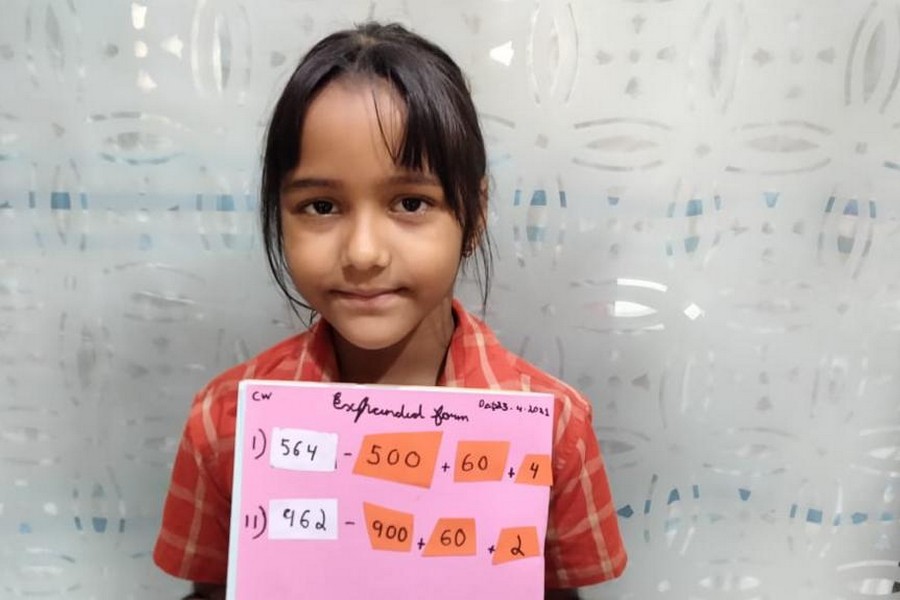 CW
Expanded form
23.4.2021
I) 564 - 500 + 60 + 4
II) 962 - 900 + 60 + 2